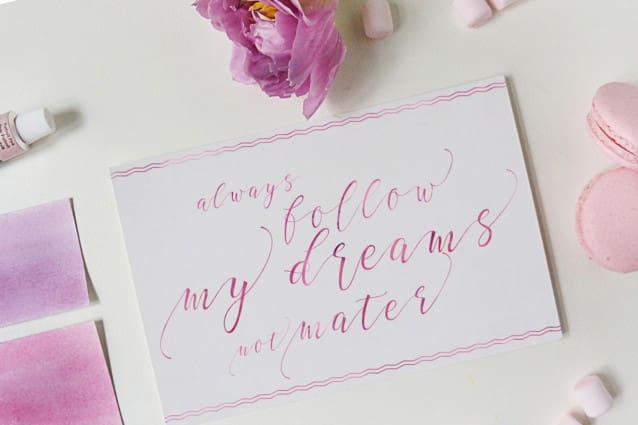 always
follow
my dreams
not mater